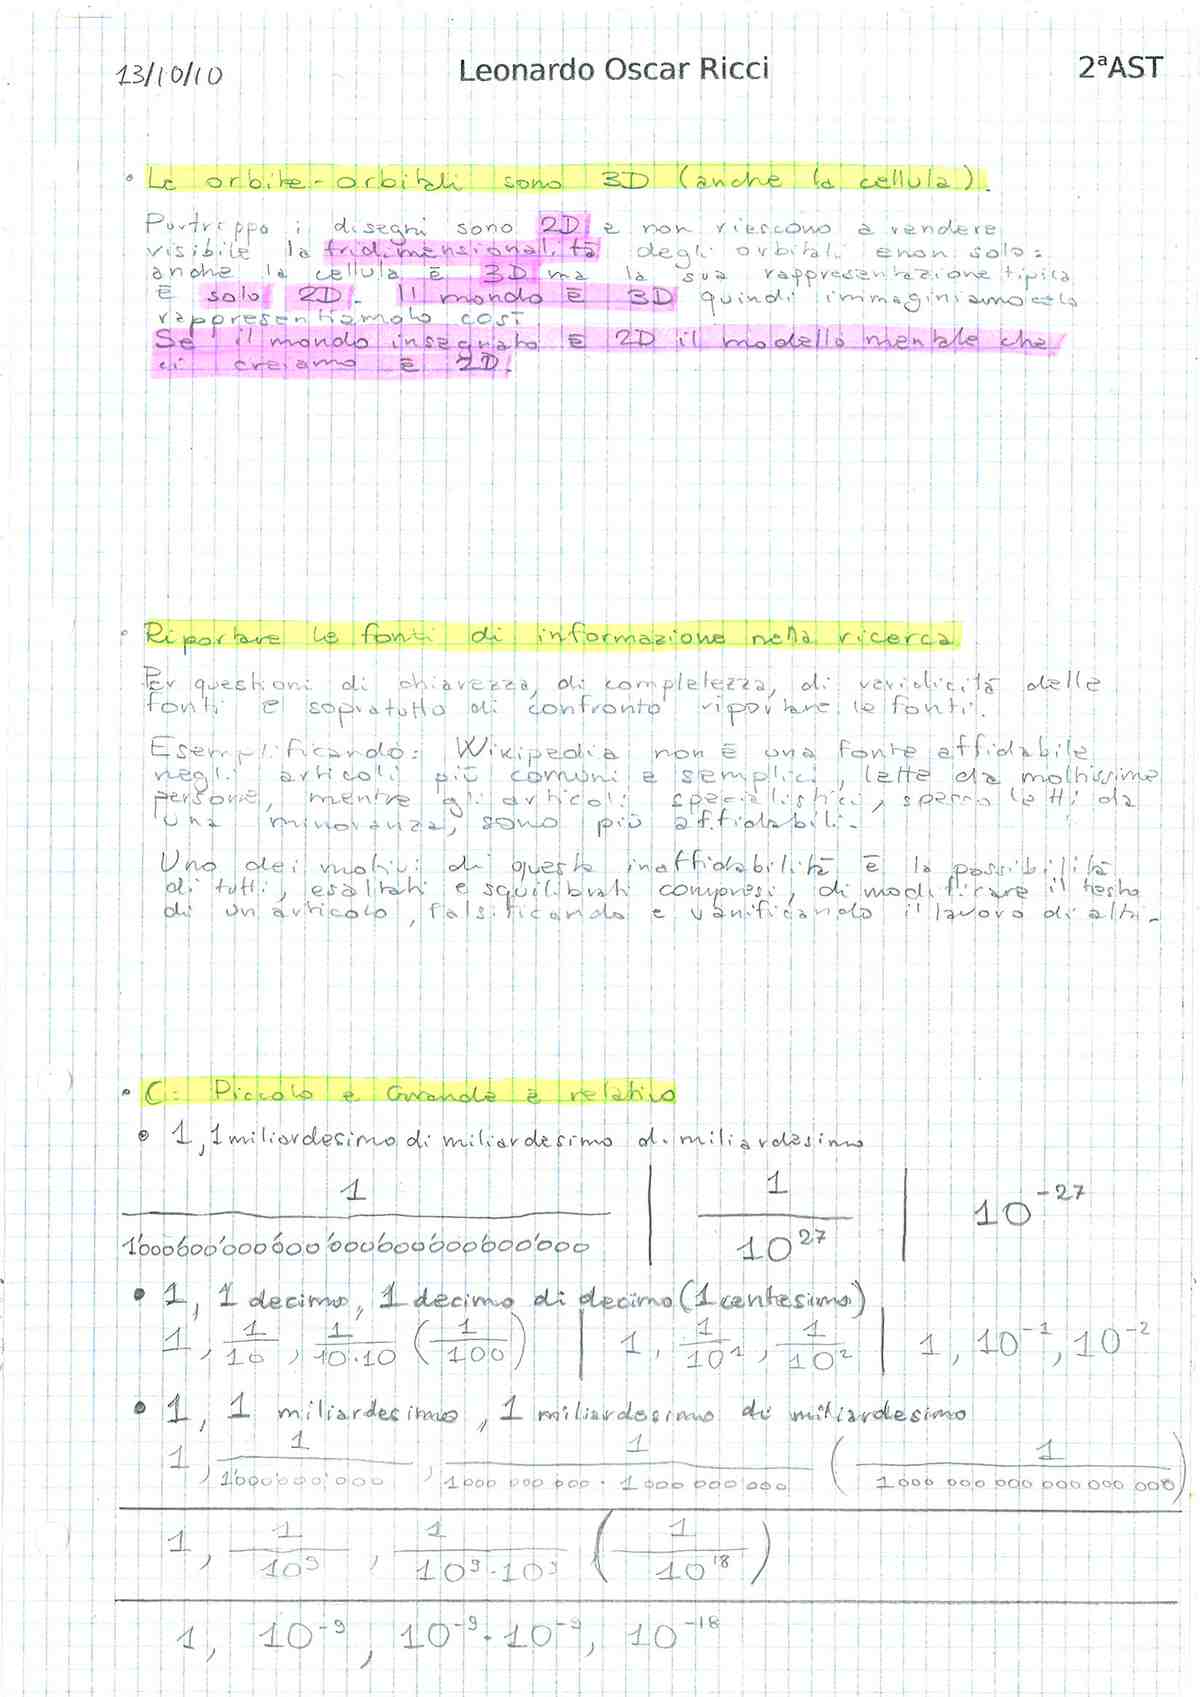 13/10/10 Leonardo Oscar Ricci 2ªAST
• Le orbite-orbitali sono 3D (anche la cellula).
Purtroppo i disegni sono 2D e non riescono a rendere
visibile la tridimensionalità degli orbitali e non solo:
anche la cellula è 3D ma la sua rappresentazione tipica
è solo 2D. Il mondo è 3D quindi immaginiamocelo
rappresentiamolo così
Se il mondo insegnato è 2D il modello mentale che
ci creiamo è 2D.
• Riportare le fonti di informazione nella ricerca
Per questioni di chiarezza, di completezza, di veridicità delle
fonti e sopratutto di confronto riportare le fonti.
Esemplificando: Wikipedia non è una fonte affidabile
negli articoli più comuni e semplici, lette da moltissime
persone, mentre gli articoli specialistici, spesso letti da
una minoranza, sono più affidabili.
Uno dei motivi di questa inaffidabilità è la possibilità
di tutti, esaltati e squilibrati compresi, di modificare il testo
di un articolo, falsificando e vanificando il lavoro di altri.
• C: Piccolo e Grande è relativo
• 1, 1 miliardesimo di miliardesimo di miliardesimo
1 / 1'000'000'000'000'000'000'000'000'000 | 1 / 10^27 | 10^-27
• 1, 1 decimo, 1 decimo di decimo (1 centesimo)
1, 1/10, 1/10·10 (1/100) | 1, 1/10^1, 1/10^2 | 1, 10^-1, 10^-2
• 1, 1 miliardesimo, 1 miliardesimo di miliardesimo
1, 1/1'000'000'000, 1/1000 000 000 · 1000 000 000 (1/1000 000 000 000 000 000)
1, 1/10^9, 1/10^9·10^9 (1/10^18)
1, 10^-9, 10^-9·10^-9, 10^-18